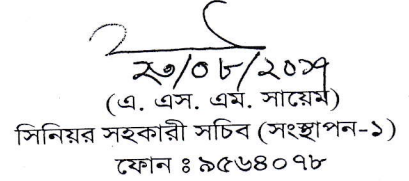 ২৩/০৮/২০১৭
(এ. এস. এম. সায়েম)
সিনিয়র সহকারী সচিব (সংস্থাপন-১)
ফোন ঃ ৯৫৬৪০৭৮